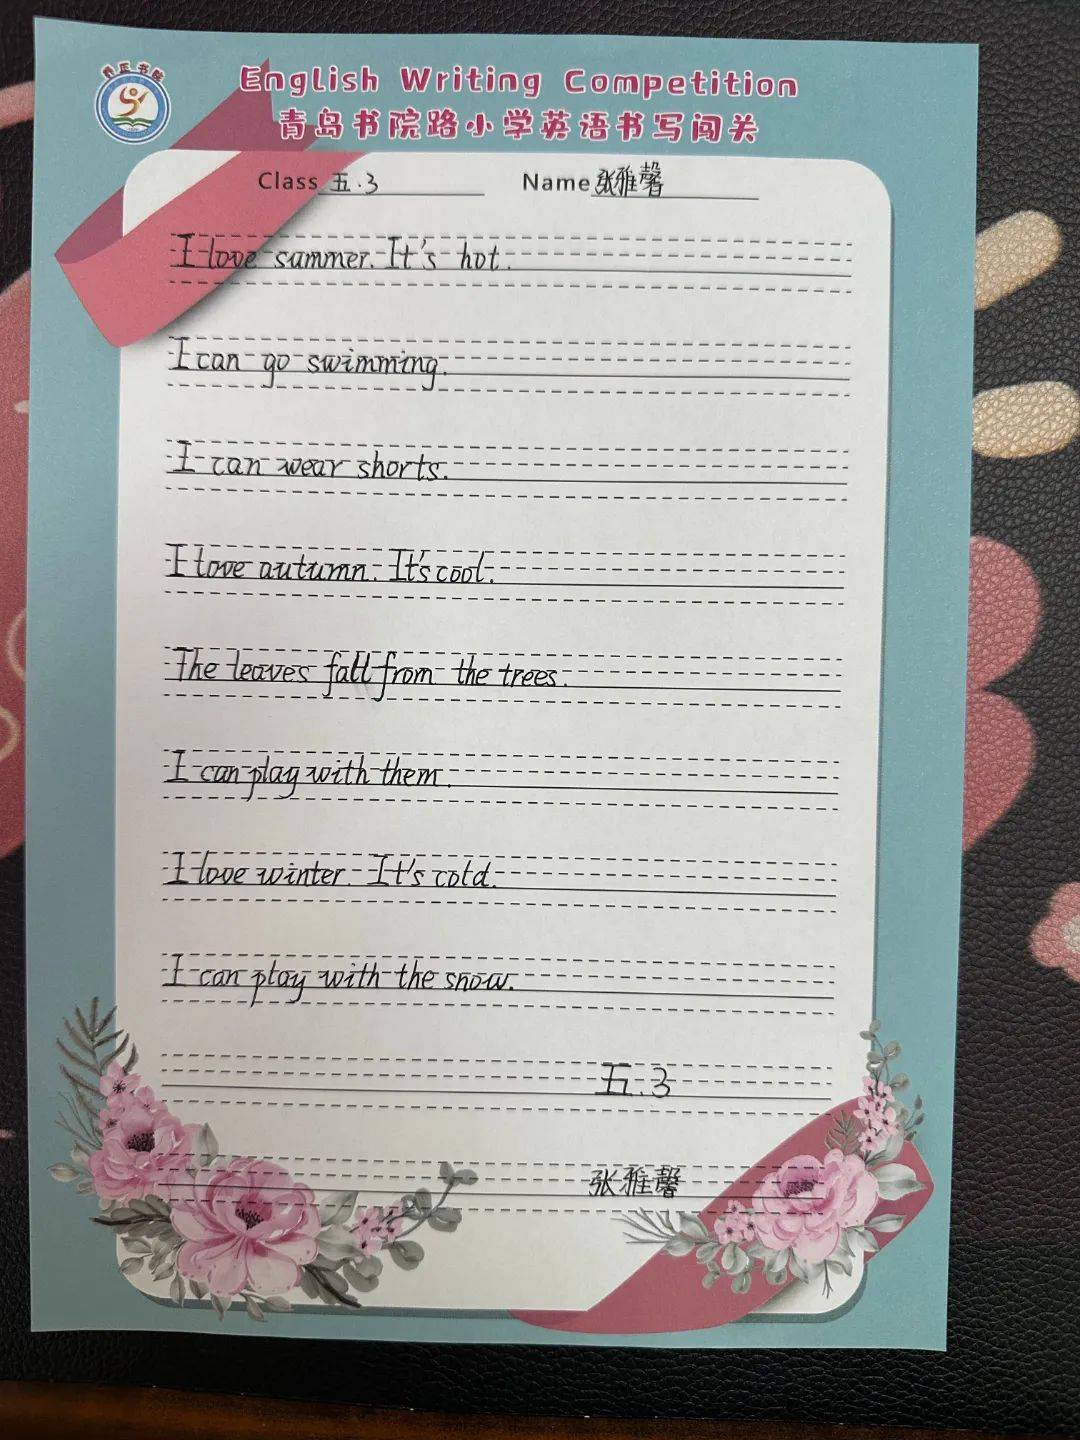 养正书院
English Writing Competition
青岛书院路小学英语书写闯关
Class 五.3 Name 张雅馨
I love sammer. It's hot.
I can go swimming.
I can wear shorts.
I love autumn. It's cool.
The leaves fall from the trees.
I can play with them.
I love winter. It's cold.
I can play with the snow.
五.3
张雅馨